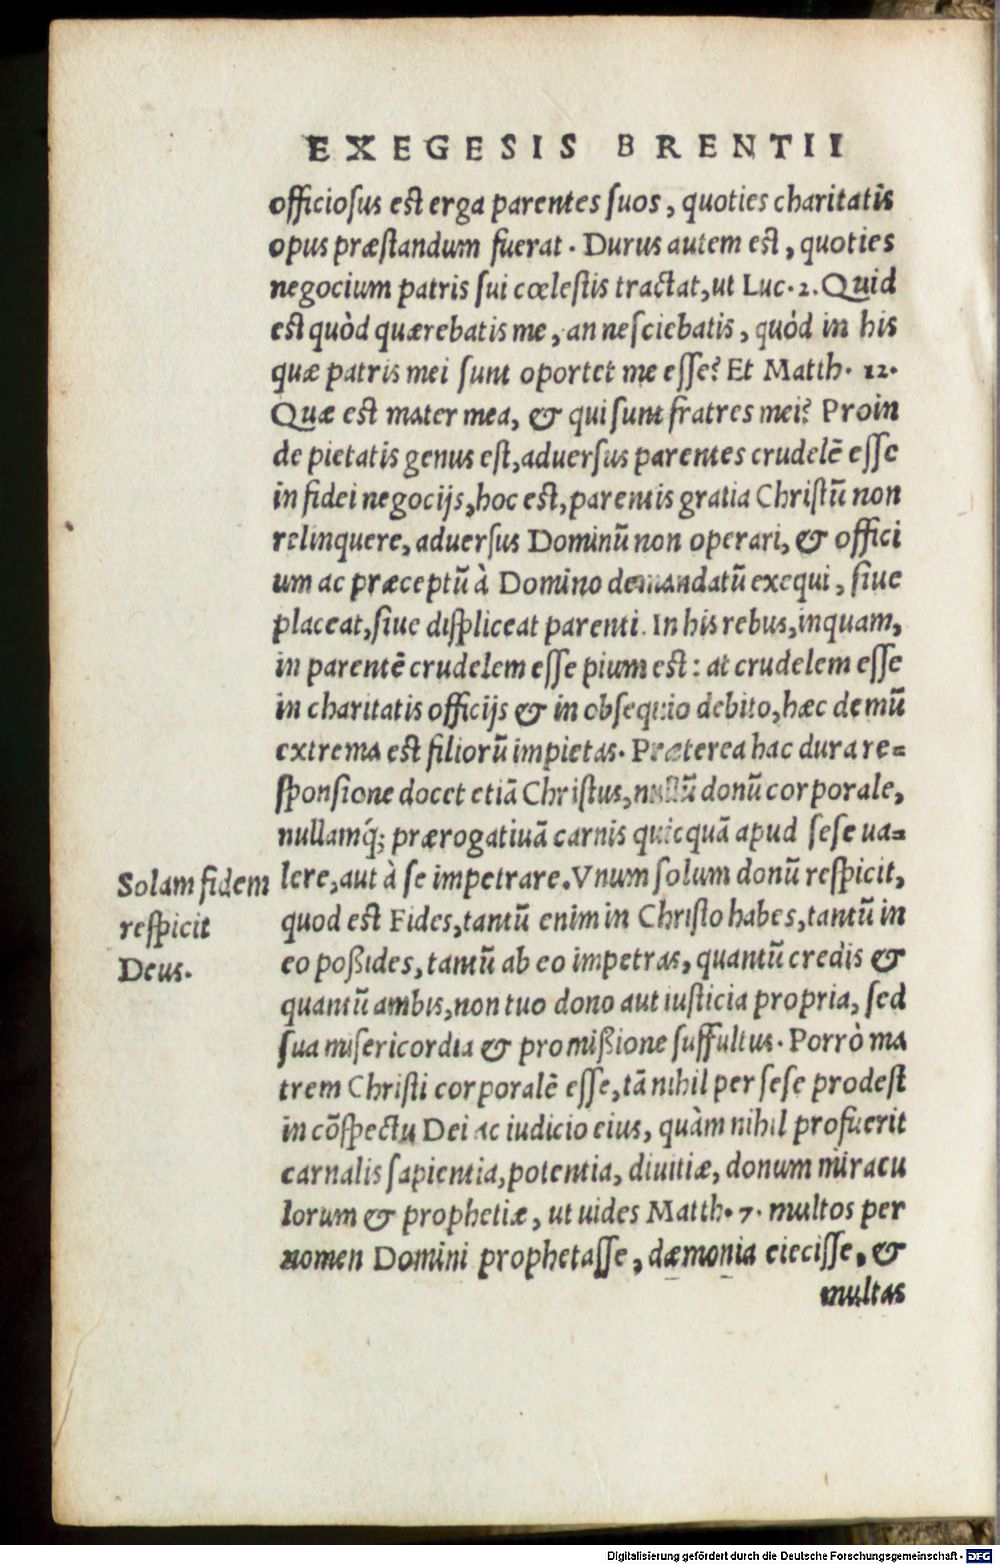 EXEGESIS BRENTII
officiosus est erga parentes suos, quoties charitatis
opus præstandum fuerat. Durus autem est, quoties
negocium patris sui cœlestis tractat, ut Luc. 2. Quid
est quòd quærebatis me, an nesciebatis, quòd in his
quæ patris mei sunt oportet me esse? Et Matth. 12.
Quæ est mater mea, & qui sunt fratres mei? Proin
de pietatis genus est, aduersus parentes crudelē esse
in fidei negocijs, hoc est, parentis gratia Christū non
relinquere, aduersus Dominū non operari, & offici
um ac præceptū à Domino demandatū exequi, siue
placeat, siue displiceat parenti. In his rebus, inquam,
in parentē crudelem esse pium est: at crudelem esse
in charitatis officijs & in obsequio debito, hæc demū
extrema est filiorū impietas. Præterea hac dura re=
sponsione docet etiā Christus, nullū donū corporale,
nullamq́; prærogatiuā carnis quicquā apud sese ua=
lere, aut à se impetrare. Vnum solum donū respicit,
quod est Fides, tantū enim in Christo habes, tantū in
eo poßides, tantū ab eo impetras, quantū credis &
quantū ambis, non tuo dono aut iusticia propria, sed
sua misericordia & promißione suffultus. Porrò ma
trem Christi corporalē esse, tā nihil per sese prodest
in cōspectu Dei ac iudicio eius, quàm nihil profuerit
carnalis sapientia, potentia, diuitiæ, donum miracu
lorum & prophetiæ, ut uides Matth. 7. multos per
nomen Domini prophetasse, dæmonia eiecisse, &
multas
Solam fidem
respicit
Deus.
Digitalisierung gefördert durch die Deutsche Forschungsgemeinschaft - DFG